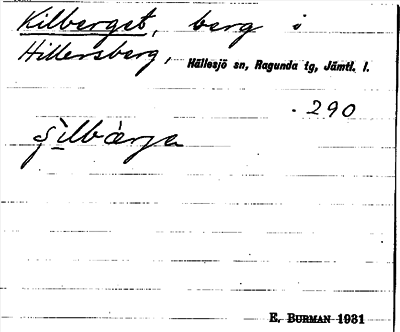 Kilberget, berg i
Hillersberg, Hällesjö sn, Ragunda tg, Jämtl. l.
. 290
E. BURMAN 1931